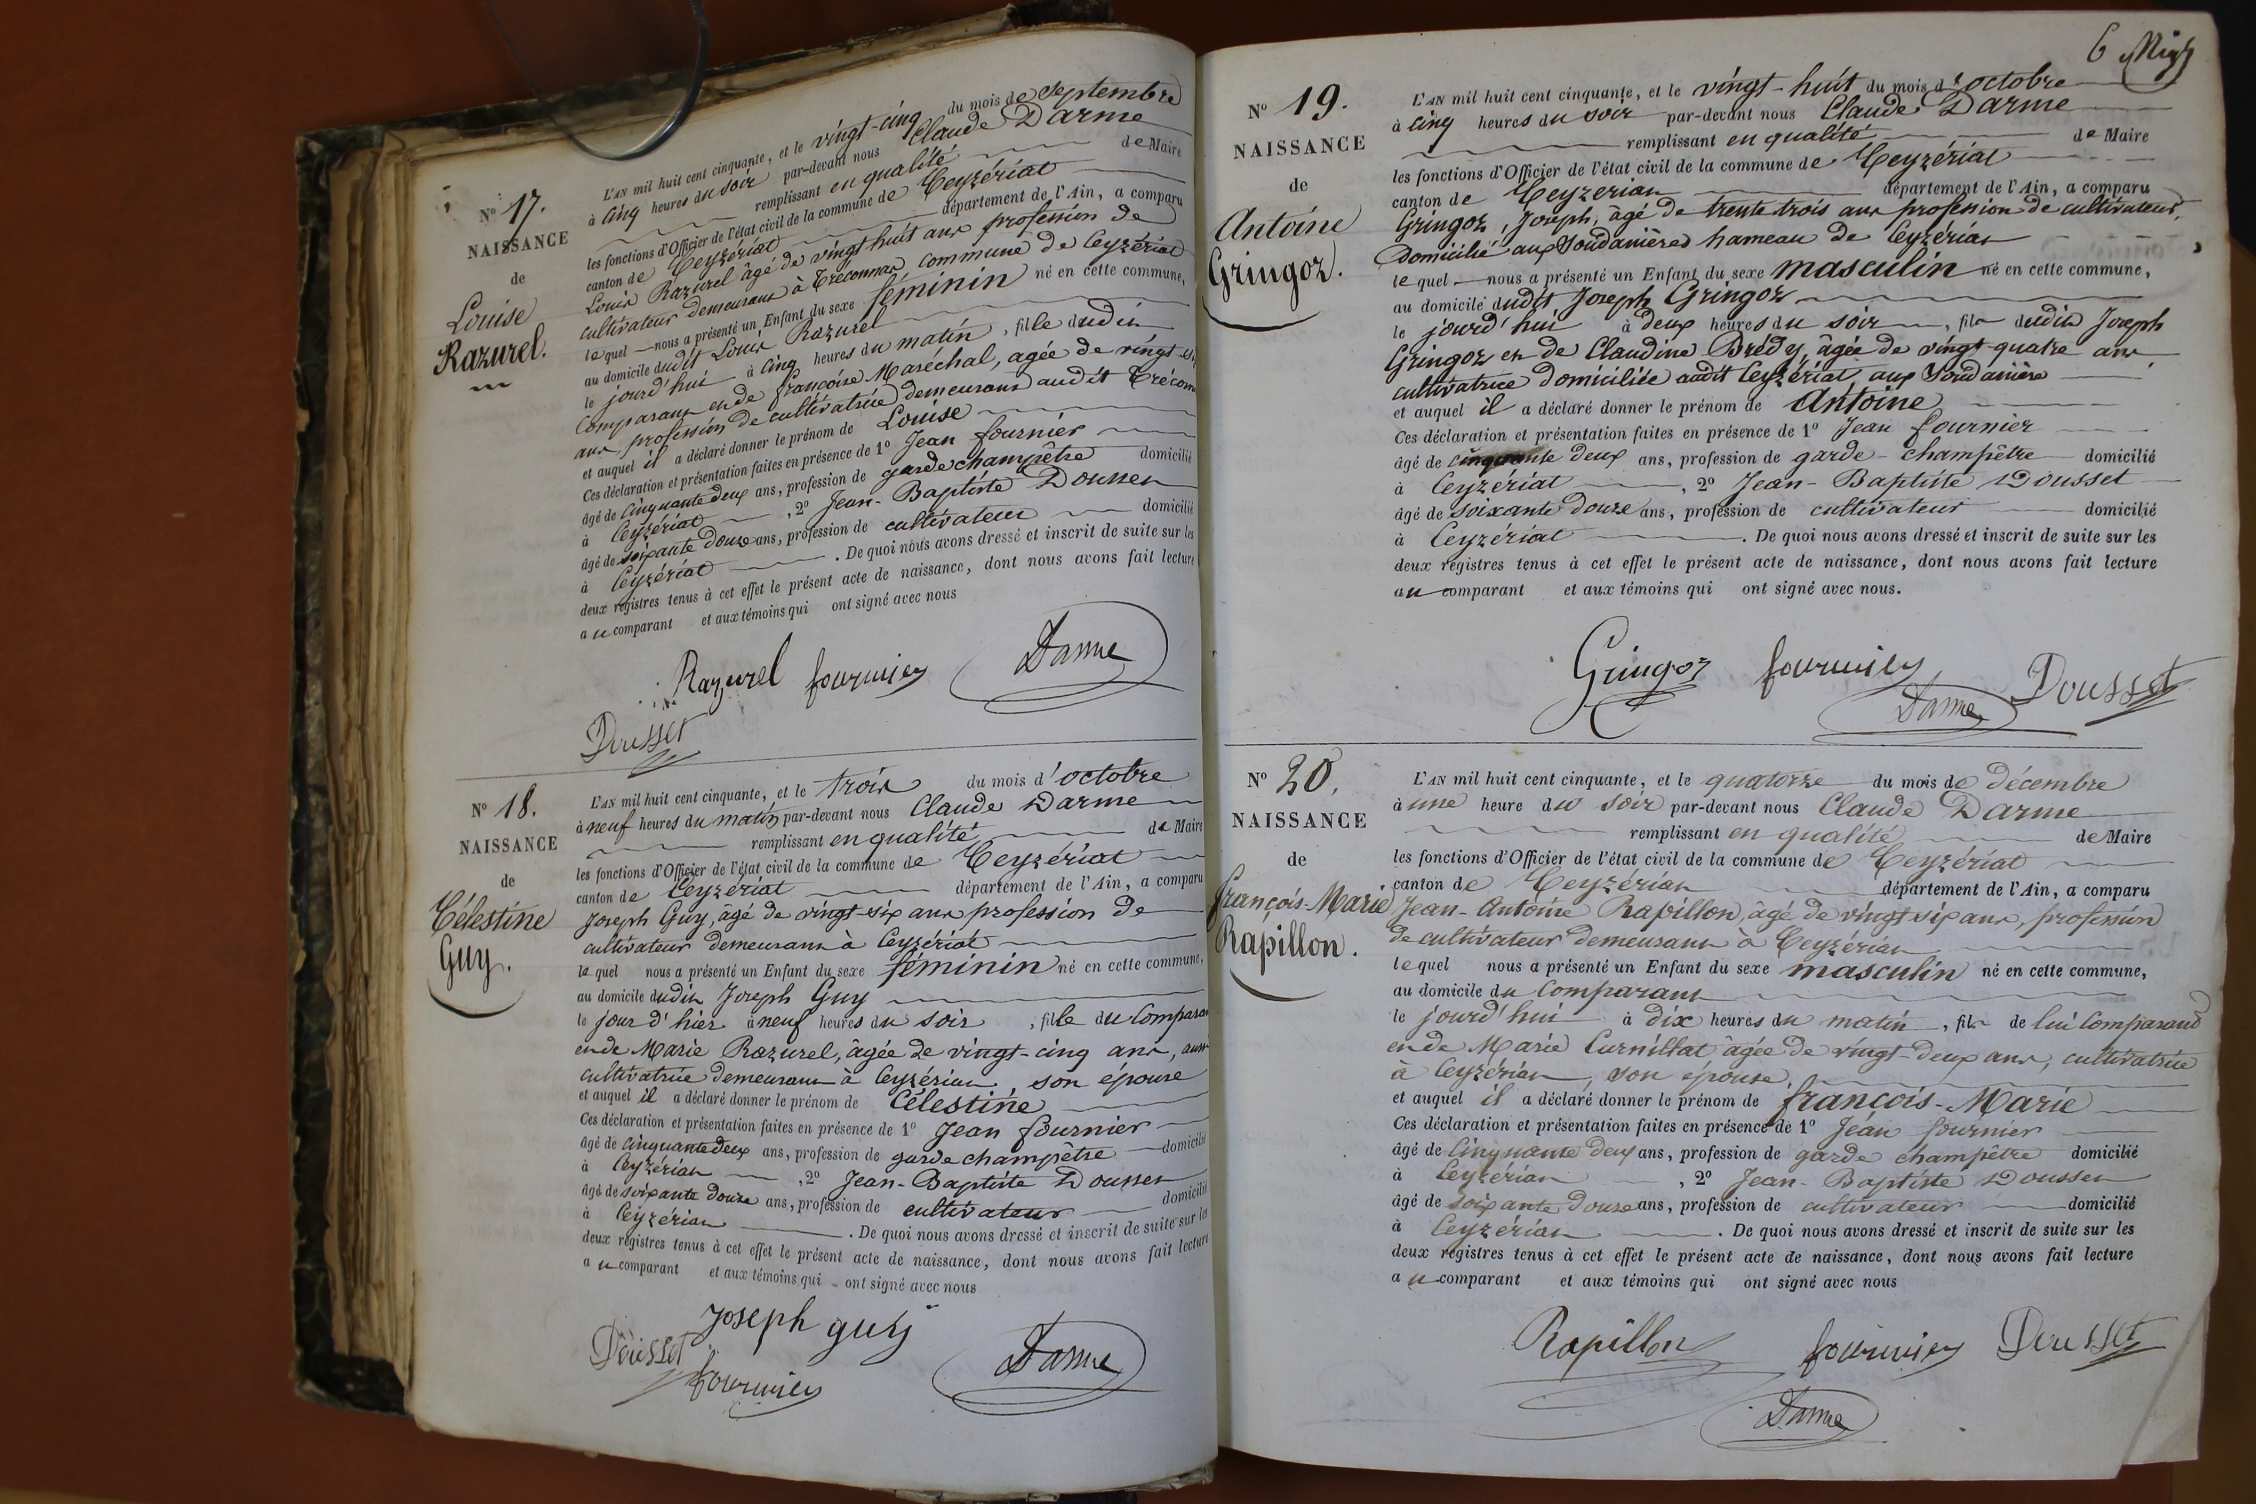 N° 17.
NAISSANCE
de
Louise
Razurel.
L'AN mil huit cent cinquante, et le vingt-cinq du mois de Septembre
à cinq heures du soir par-devant nous Claude Darme
remplissant en qualité de Maire
les fonctions d'Officier de l'état civil de la commune de Ceyzériat
canton de Ceyzériat département de l'Ain, a comparu
Louis Razurel âgé de vingt huit ans profession de
cultivateur demeurant à Tréconnas commune de Ceyzériat
lequel nous a présenté un Enfant du sexe féminin né en cette commune,
au domicile dudit Louis Razurel
le jourd'hui à cinq heures du matin, fille dudit
Comparant et de françoise Maréchal, agée de vingt-
ans, profession de cultivatrice demeurant audit Trécon
et auquel il a déclaré donner le prénom de Louise
Ces déclaration et présentation faites en présence de 1° Jean fournier
âgé de cinquante deux ans, profession de garde champêtre domicilié
à Ceyzériat, 2° Jean-Baptiste Dousset
âgé de soixante douze ans, profession de cultivateur domicilié
à Ceyzériat. De quoi nous avons dressé et inscrit de suite sur les
deux registres tenus à cet effet le présent acte de naissance, dont nous avons fait lecture
au comparant et aux témoins qui ont signé avec nous
Razurel fournier Darme
Dousset
N° 18.
NAISSANCE
de
Célestine
Guy.
L'AN mil huit cent cinquante, et le trois du mois d'octobre
à neuf heures du matin par-devant nous Claude Darme
remplissant en qualité de Maire
les fonctions d'Officier de l'état civil de la commune de Ceyzériat
canton de Ceyzériat département de l'Ain, a comparu
Joseph Guy, âgé de vingt-six ans profession de
cultivateur demeurant à Ceyzériat
lequel nous a présenté un Enfant du sexe féminin né en cette commune,
au domicile dudit Joseph Guy
le jour d'hier à neuf heures du soir, fille du Compara
et de Marie Razurel, âgée de vingt-cinq ans, aussi
cultivatrice demeurant à Ceyzériat, son épouse
et auquel il a déclaré donner le prénom de Célestine
Ces déclaration et présentation faites en présence de 1° Jean fournier
âgé de cinquante deux ans, profession de garde champêtre domicilié
à Ceyzériat, 2° Jean-Baptiste Dousset
âgé de soixante douze ans, profession de cultivateur domicilié
à Ceyzériat. De quoi nous avons dressé et inscrit de suite sur les
deux registres tenus à cet effet le présent acte de naissance, dont nous avons fait lecture
au comparant et aux témoins qui ont signé avec nous
Joseph guy
Dousset fournier Darme
6
N° 19.
NAISSANCE
de
Antoine
Gringoz.
L'AN mil huit cent cinquante, et le vingt-huit du mois d'octobre
à cinq heures du soir par-devant nous Claude Darme
remplissant en qualité de Maire
les fonctions d'Officier de l'état civil de la commune de Ceyzériat
canton de Ceyzériat département de l'Ain, a comparu
Gringoz, Joseph, âgé de trente trois ans profession de cultivateur,
Domicilié aux Soudanières hameau de Ceyzériat
lequel nous a présenté un Enfant du sexe masculin né en cette commune,
au domicile dudit Joseph Gringoz
le jourd'hui à deux heures du soir, fils dudit Joseph
Gringoz et de Claudine Brédy, âgée de vingt-quatre ans
cultivatrice domiciliée audit Ceyzériat, aux Soudanière
et auquel il a déclaré donner le prénom de Antoine
Ces déclaration et présentation faites en présence de 1° Jean fournier
âgé de cinquante deux ans, profession de garde-champêtre domicilié
à Ceyzériat, 2° Jean-Baptiste Dousset
âgé de soixante douze ans, profession de cultivateur domicilié
à Ceyzériat. De quoi nous avons dressé et inscrit de suite sur les
deux registres tenus à cet effet le présent acte de naissance, dont nous avons fait lecture
au comparant et aux témoins qui ont signé avec nous.
Gringoz fournier Dousset
Darme
N° 20.
NAISSANCE
de
françois-Marie
Rapillon.
L'AN mil huit cent cinquante, et le quatorze du mois de décembre
à une heure du soir par-devant nous Claude Darme
remplissant en qualité de Maire
les fonctions d'Officier de l'état civil de la commune de Ceyzériat
canton de Ceyzériat département de l'Ain, a comparu
Jean-Antoine Rapillon, âgé de vingt six ans, profession
de cultivateur demeurant à Ceyzériat
lequel nous a présenté un Enfant du sexe masculin né en cette commune,
au domicile du Comparant
le jourd'hui à dix heures du matin, fils de lui Comparant
et de Marie Curnillat âgée de vingt-deux ans, cultivatrice
à Ceyzériat, son épouse,
et auquel il a déclaré donner le prénom de françois-Marie
Ces déclaration et présentation faites en présence de 1° Jean fournier
âgé de Cinquante deux ans, profession de garde champêtre domicilié
à Ceyzériat, 2° Jean-Baptiste Dousset
âgé de soixante douze ans, profession de cultivateur domicilié
à Ceyzériat. De quoi nous avons dressé et inscrit de suite sur les
deux registres tenus à cet effet le présent acte de naissance, dont nous avons fait lecture
au comparant et aux témoins qui ont signé avec nous
Rapillon fournier Dousset
Darme